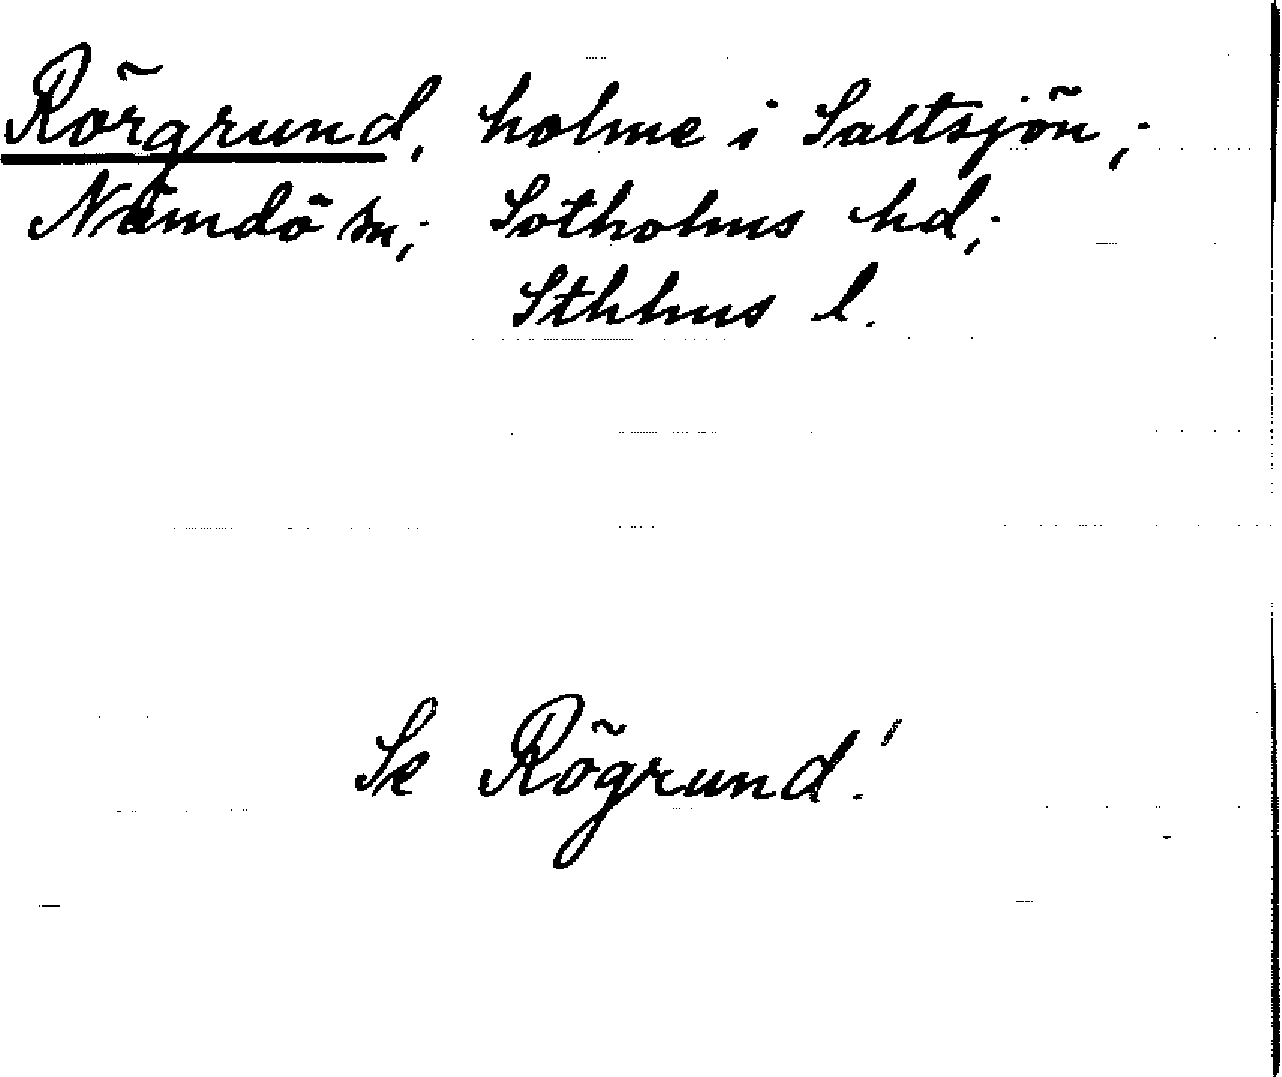 Rörgrund, holme i Saltsjön;
Nämdö sn; Sotholms hd;
Sthlms l.
Se Rögrund!